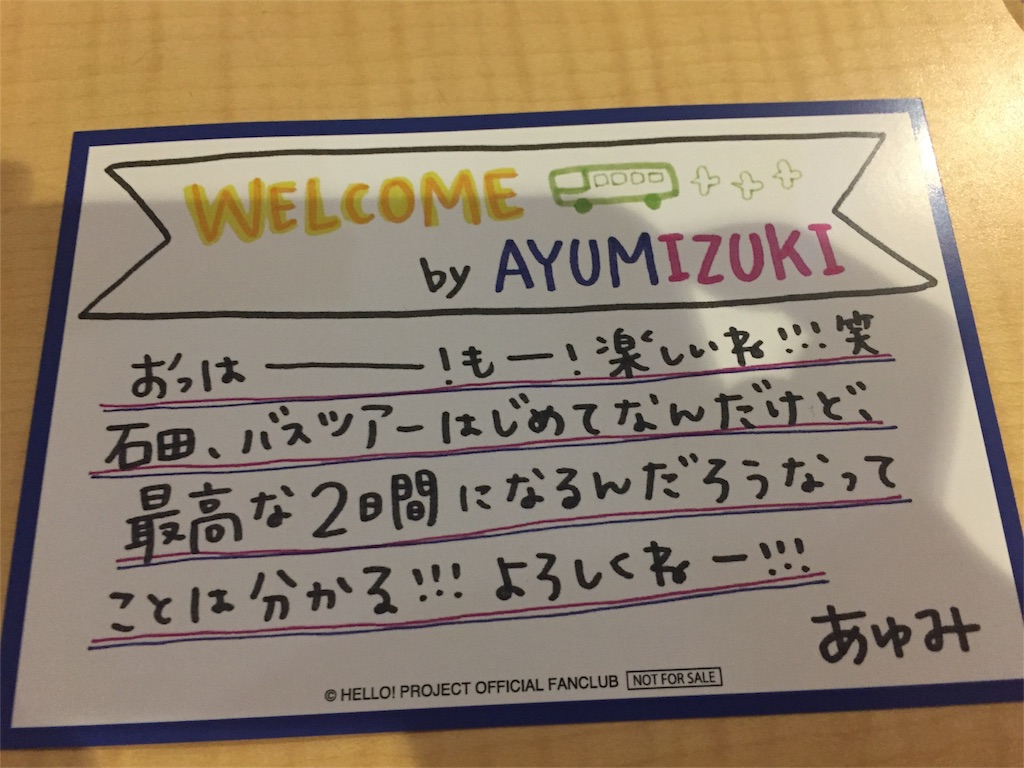 WELCOME
by AYUMIZUKI
おっはーーー！もー！楽しいね!!!笑
石田、バスツアーはじめてなんだけど、
最高な2日間になるんだろうなって
ことは分かる!!!よろしくねー!!!
あゆみ
© HELLO! PROJECT OFFICIAL FANCLUB NOT FOR SALE